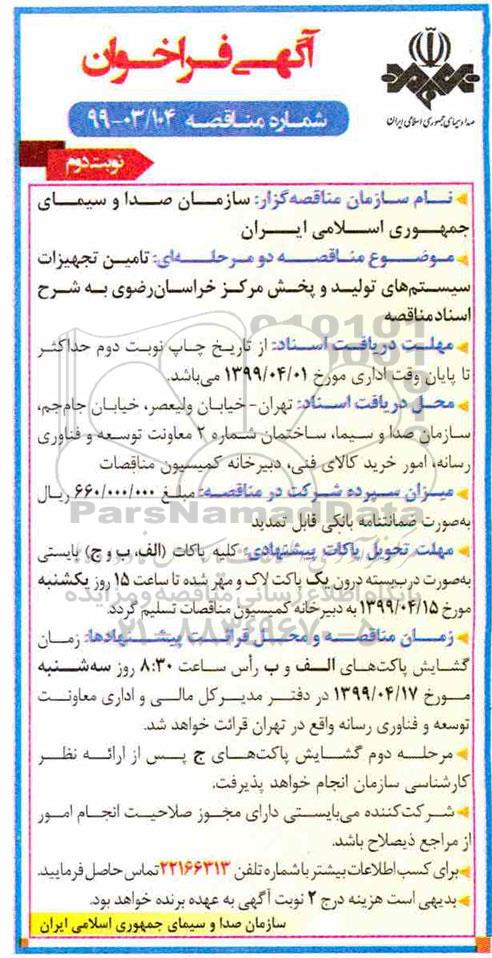 آگهی فراخوان
صدا و سیمای جمهوری اسلامی ایران
شماره مناقصه ۹۹-۰۳/۱۰۴
نوبت دوم
نام سازمان مناقصه‌گزار: سازمان صدا و سیمای
جمهوری اسلامی ایران
موضوع مناقصه دو مرحله‌ای: تامین تجهیزات
سیستم‌های تولید و پخش مرکز خراسان‌رضوی به شرح
اسناد مناقصه
مهلت دریافت اسناد: از تاریخ چاپ نوبت دوم حداکثر
تا پایان وقت اداری مورخ ۱۳۹۹/۰۴/۰۱ می‌باشد.
محل دریافت اسناد: تهران- خیابان ولیعصر، خیابان جام‌جم،
سازمان صدا و سیما، ساختمان شماره ۲ معاونت توسعه و فناوری
رسانه، امور خرید کالای فنی، دبیرخانه کمیسیون مناقصات
میزان سپرده شرکت در مناقصه: مبلغ ۶۶۰/۰۰۰/۰۰۰ ریال
به‌صورت ضمانتنامه بانکی قابل تمدید
ParsNamadData
مهلت تحویل پاکات پیشنهادی: کلیه پاکات (الف، ب و ج) بایستی
به‌صورت دربسته درون یک پاکت لاک و مهر شده تا ساعت ۱۵ روز یکشنبه
پایگاه اطلاع رسانی مناقصه و مزایده
مورخ ۱۳۹۹/۰۴/۱۵ به دبیرخانه کمیسیون مناقصات تسلیم گردد.
۰۲۱-۸۸۳۴۹۶۷۰-۵
زمان مناقصه و محل قرائت پیشنهادها: زمان
گشایش پاکت‌های الف و ب رأس ساعت ۸:۳۰ روز سه‌شنبه
مورخ ۱۳۹۹/۰۴/۱۷ در دفتر مدیرکل مالی و اداری معاونت
توسعه و فناوری رسانه واقع در تهران قرائت خواهد شد.
مرحله دوم گشایش پاکت‌های ج پس از ارائه نظر
کارشناسی سازمان انجام خواهد پذیرفت.
شرکت‌کننده می‌بایستی دارای مجوز صلاحیت انجام امور
از مراجع ذیصلاح باشد.
برای کسب اطلاعات بیشتر با شماره تلفن ۲۲۱۶۶۳۱۳ تماس حاصل فرمایید.
بدیهی است هزینه درج ۲ نوبت آگهی به عهده برنده خواهد بود.
سازمان صدا و سیمای جمهوری اسلامی ایران